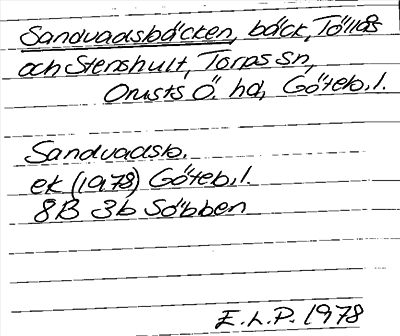 Sandvadsbäcken, bäck, Töllås
och Stenshult, Torps sn,
Orusts Ö. hd, Göteb. l.
Sandvadsb.
ek (1978) Göteb. l.
8B 3b Säbben
E.L.P. 1978